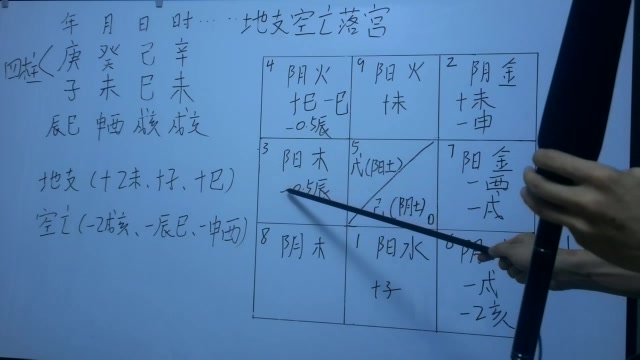 年 月 日 时……地支空亡落宫
四柱<庚 癸 己 辛
子 未 巳 未
辰巳 申酉 戌亥 戌亥
地支(+2未、+子、+巳)
空亡(-2戌亥、-辰巳、-申酉)
4 阴火
+巳 -巳
-0.5辰
9 阳火
+未
2 阴金
+未
-申
3 阳木
-0.5辰
5 戊(阳土)
己(阴土)
7 阳金
-酉
-戌
8 阴木
1 阳水
+子
6 阴
-戌
-2亥